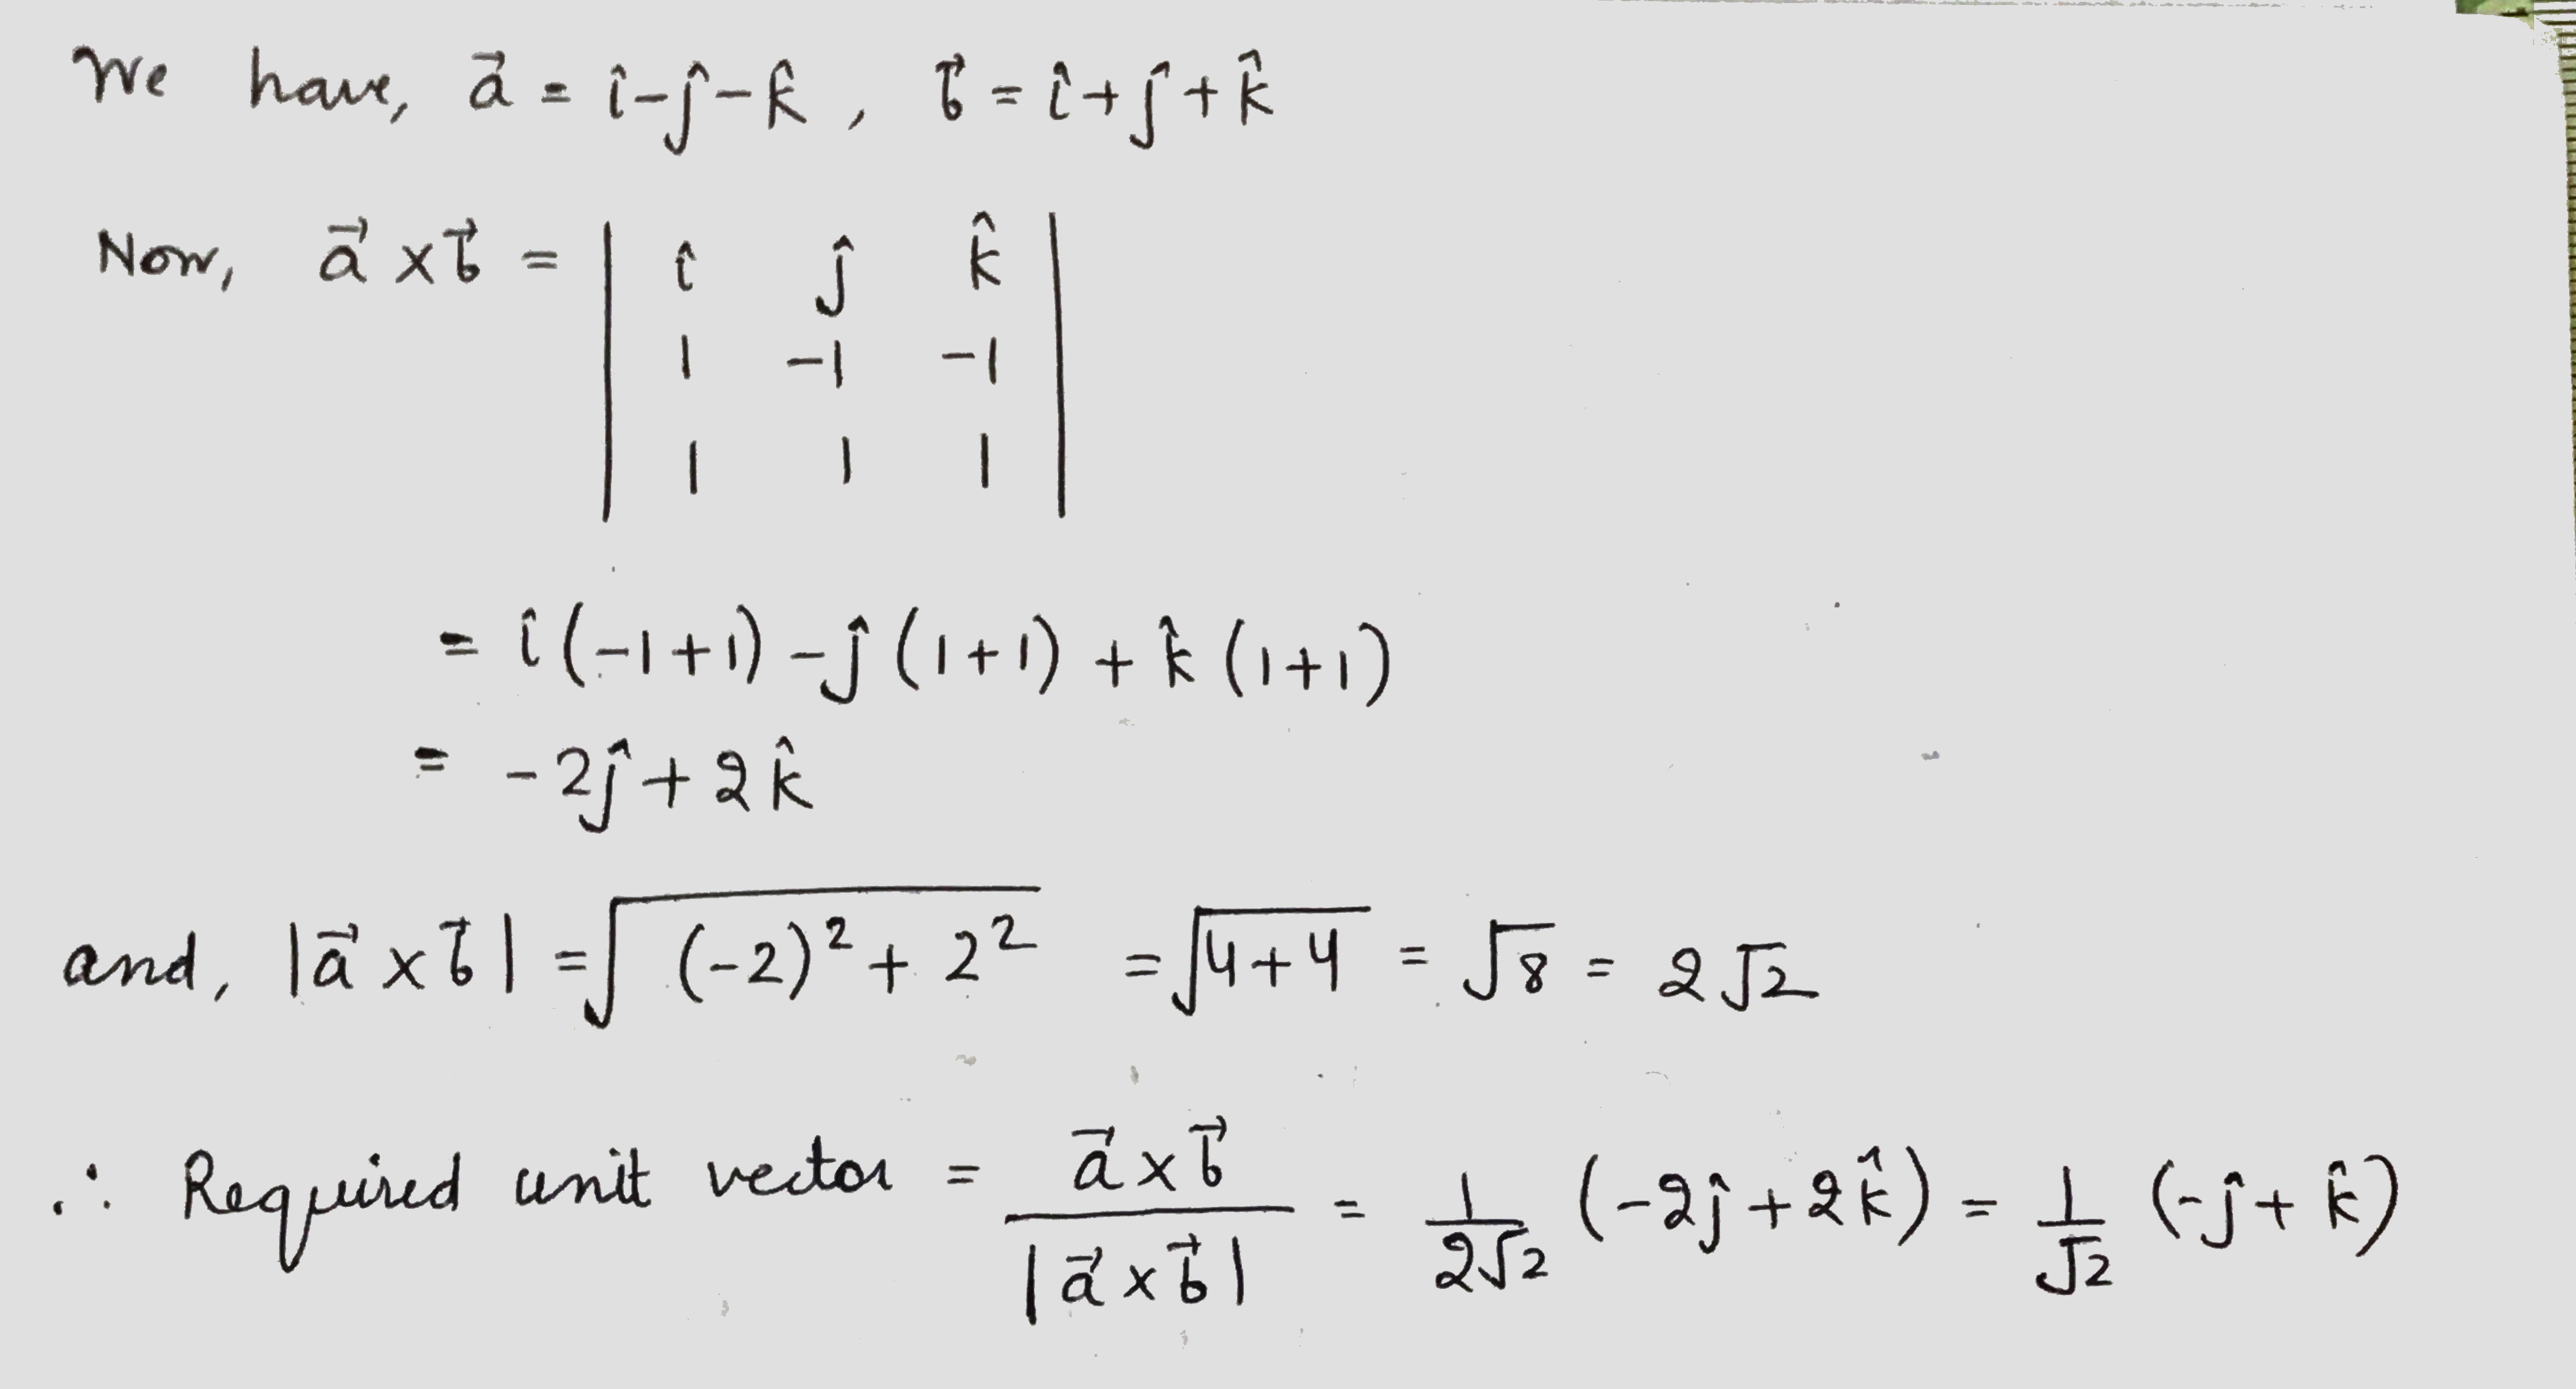 We have, $\vec{a} = \hat{i} - \hat{j} - \hat{k}$, $\vec{b} = \hat{i} + \hat{j} + \hat{k}$
Now, $\vec{a} \times \vec{b} = \begin{vmatrix} \hat{i} & \hat{j} & \hat{k} \\ 1 & -1 & -1 \\ 1 & 1 & 1 \end{vmatrix}$
$= \hat{i}(-1+1) - \hat{j}(1+1) + \hat{k}(1+1)$
$= -2\hat{j} + 2\hat{k}$
and, $|\vec{a} \times \vec{b}| = \sqrt{(-2)^2 + 2^2} = \sqrt{4+4} = \sqrt{8} = 2\sqrt{2}$
$\therefore$ Required unit vector $= \frac{\vec{a} \times \vec{b}}{|\vec{a} \times \vec{b}|} = \frac{1}{2\sqrt{2}}(-2\hat{j} + 2\hat{k}) = \frac{1}{\sqrt{2}}(-\hat{j} + \hat{k})$